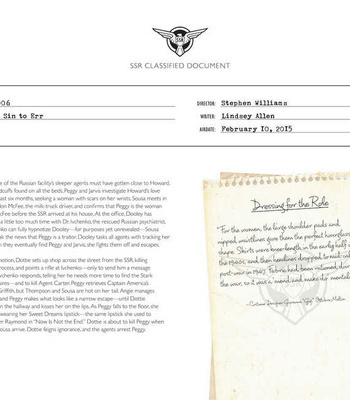 SSR
SSR CLASSIFIED DOCUMENT
006
DIRECTOR: Stephen Williams
Sin to Err
WRITER: Lindsey Allen
AIRDATE: February 10, 2015
e of the Russian facility's sleeper agents must have gotten close to Howard.
dcuffs found on all the beds, Peggy and Jarvis investigate Howard's love
ast six months, seeking a woman with scars on her wrists. Sousa meets in
on McFee, the milk truck driver, and confirms that Peggy is the woman
cFee before the SSR arrived at his house. At the office, Dooley has
a little too much time with Dr. Ivchenko, the rescued Russian psychiatrist.
nko can fully hypnotize Dooley—for purposes yet unrevealed—Sousa
ak the news that Peggy is a traitor. Dooley tasks all agents with tracking her
n they eventually find Peggy and Jarvis, she fights them off and escapes.
motion, Dottie sets up shop across the street from the SSR, killing
rocess, and points a rifle at Ivchenko—only to send him a message
vchenko responds, telling her he needs more time to find the Stark
unts—and to kill Agent Carter. Peggy retrieves Captain America's
Griffith, but Thompson and Sousa are hot on her tail. Angie manages
and Peggy makes what looks like a narrow escape—until Dottie
n the hallway and kisses her on the lips. As Peggy falls to the floor, she
wearing her Sweet Dreams lipstick—the same lipstick she used to
er Raymond in "Now Is Not the End." Dottie is about to kill Peggy when
ousa arrive. Dottie feigns ignorance, and the agents arrest Peggy.
Dressing for the Role
"For the women, the large shoulder pads and
nipped waistlines gave them the perfect hourglass
shape. Skirts were knee-length in the early half of
the 1940s, and then hemlines dropped to mid-calf
post-war in 1947. Fabric had been rationed during
the war, so it was a
—Costume Designer Giovanna